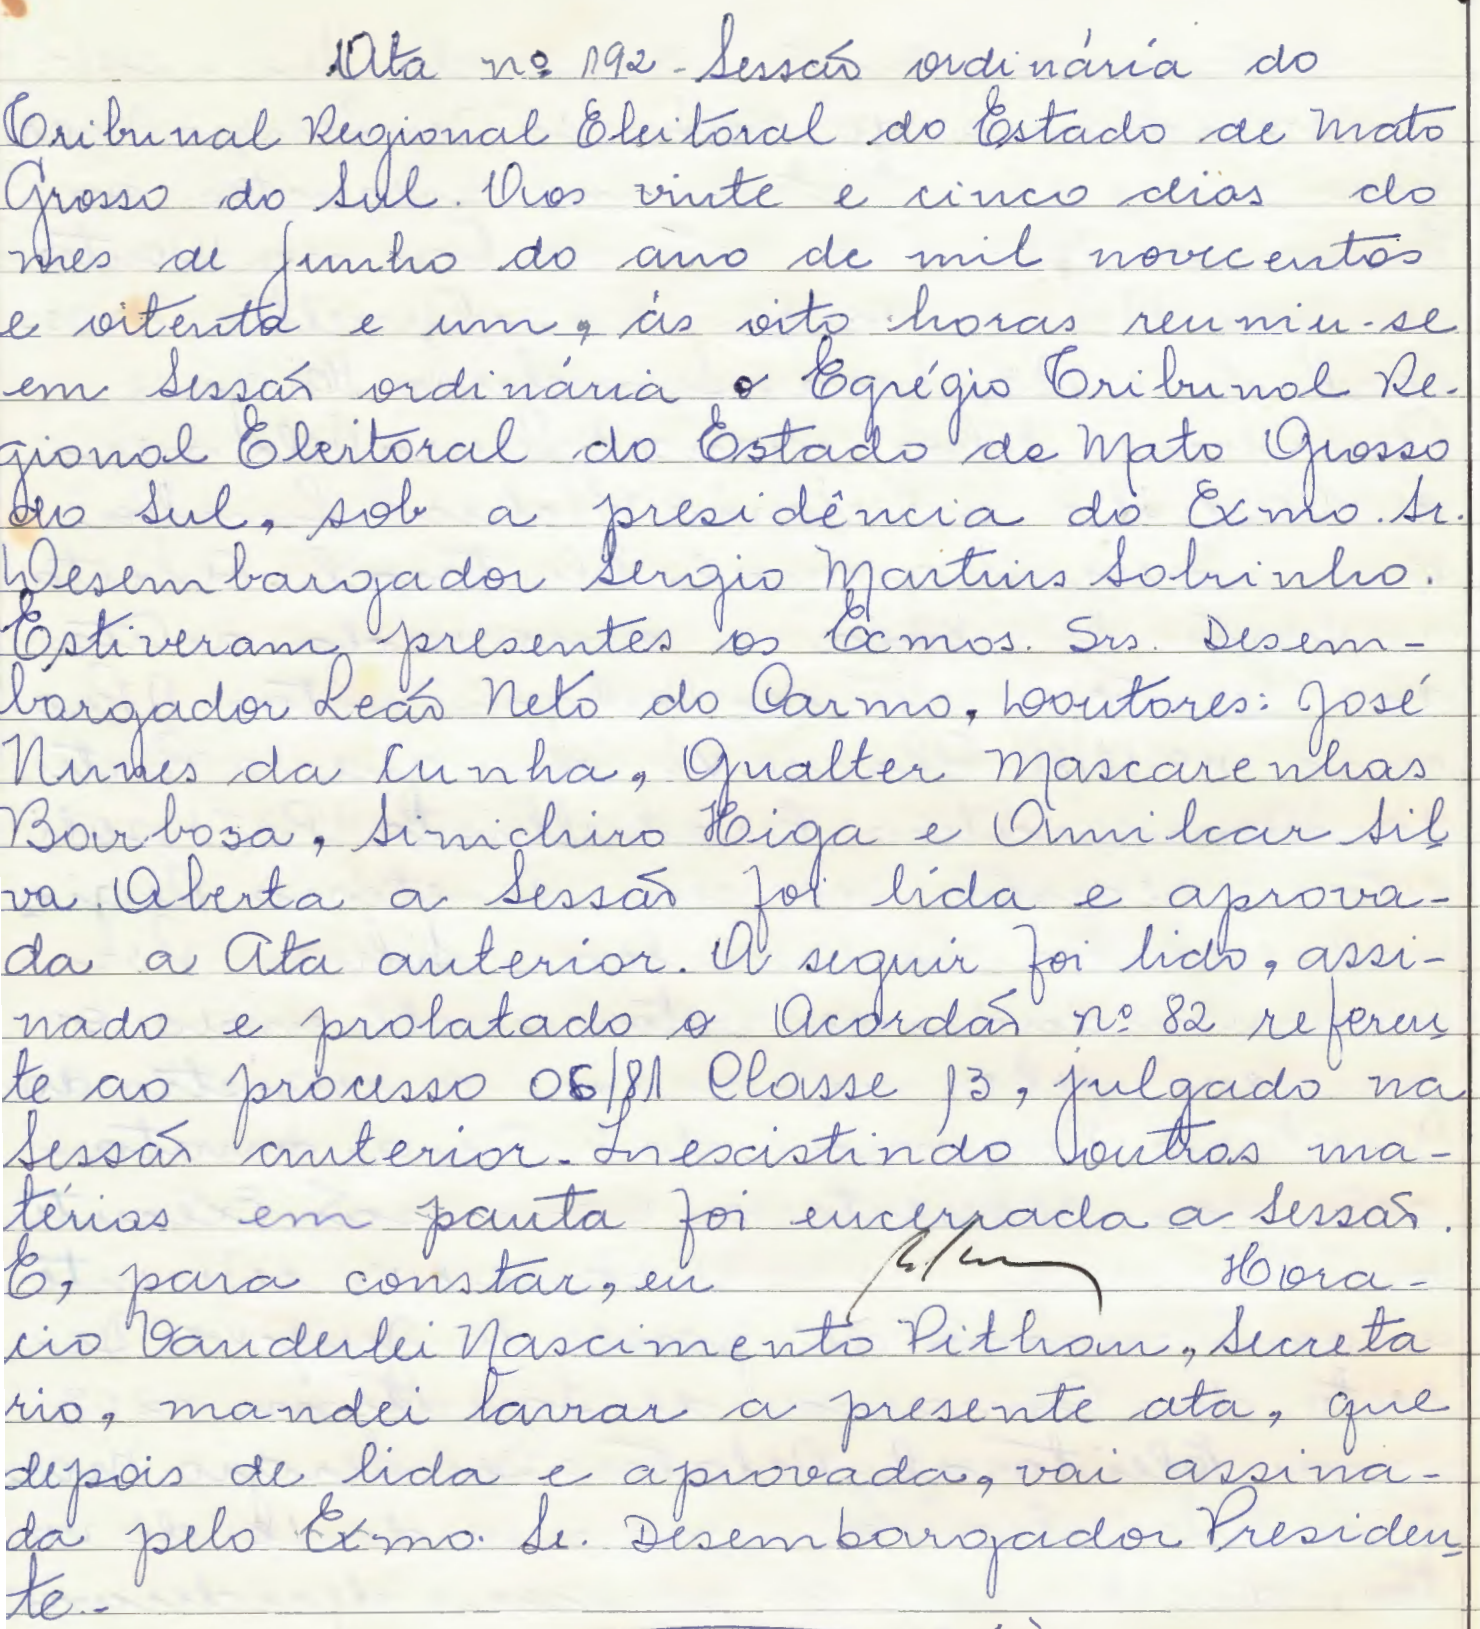 Ata nº 192 - Sessão ordinária do
Tribunal Regional Eleitoral do Estado de Mato
Grosso do Sul. Aos vinte e cinco dias do
mes de junho do ano de mil novecentos
e oitenta e um, ás oito horas reuniu-se
em Sessão ordinária o Egrégio Tribunal Re-
gional Eleitoral do Estado de Mato Grosso
do Sul, sob a presidência do Exmo. Sr.
Desembargador Sergio Martins Sobrinho.
Estiveram presentes os Exmos. Srs. Desem-
bargador Leão Neto do Carmo, Doutores: José
Nunes da Cunha, Gualter Mascarenhas
Barbosa, Sinichiro Higa e Amilcar Sil
va. Aberta a Sessão foi lida e aprova-
da a Ata anterior. A seguir foi lido, assi-
nado e prolatado o Acordão nº 82 referen
te ao processo 06/81 Classe 13, julgado na
Sessão anterior. Inexistindo outras ma-
térias em pauta foi encerrada a Sessão.
E, para constar, eu Hora-
cio Vanderlei Nascimento Pithan, Secreta
rio, mandei lavrar a presente ata, que
depois de lida e aprovada, vai assina-
da pelo Exmo. Sr. Desembargador Presiden
te.-